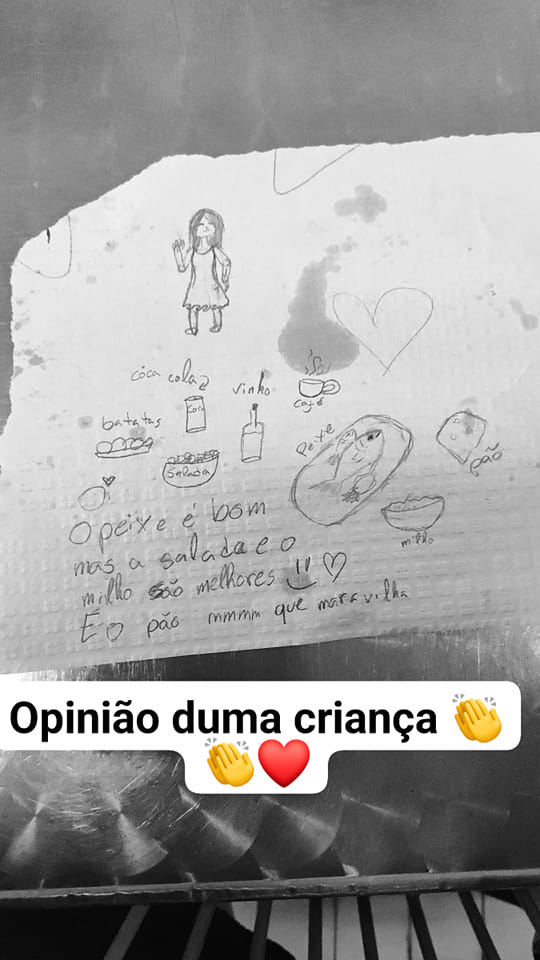 coca cola
Coca
vinho
café
batatas
salada
Peixe
pão
milho
O peixe é bom
mas a salada e o
milho são melhores
E o pão mmmm que maravilha
Opinião duma criança 👏
👏❤️